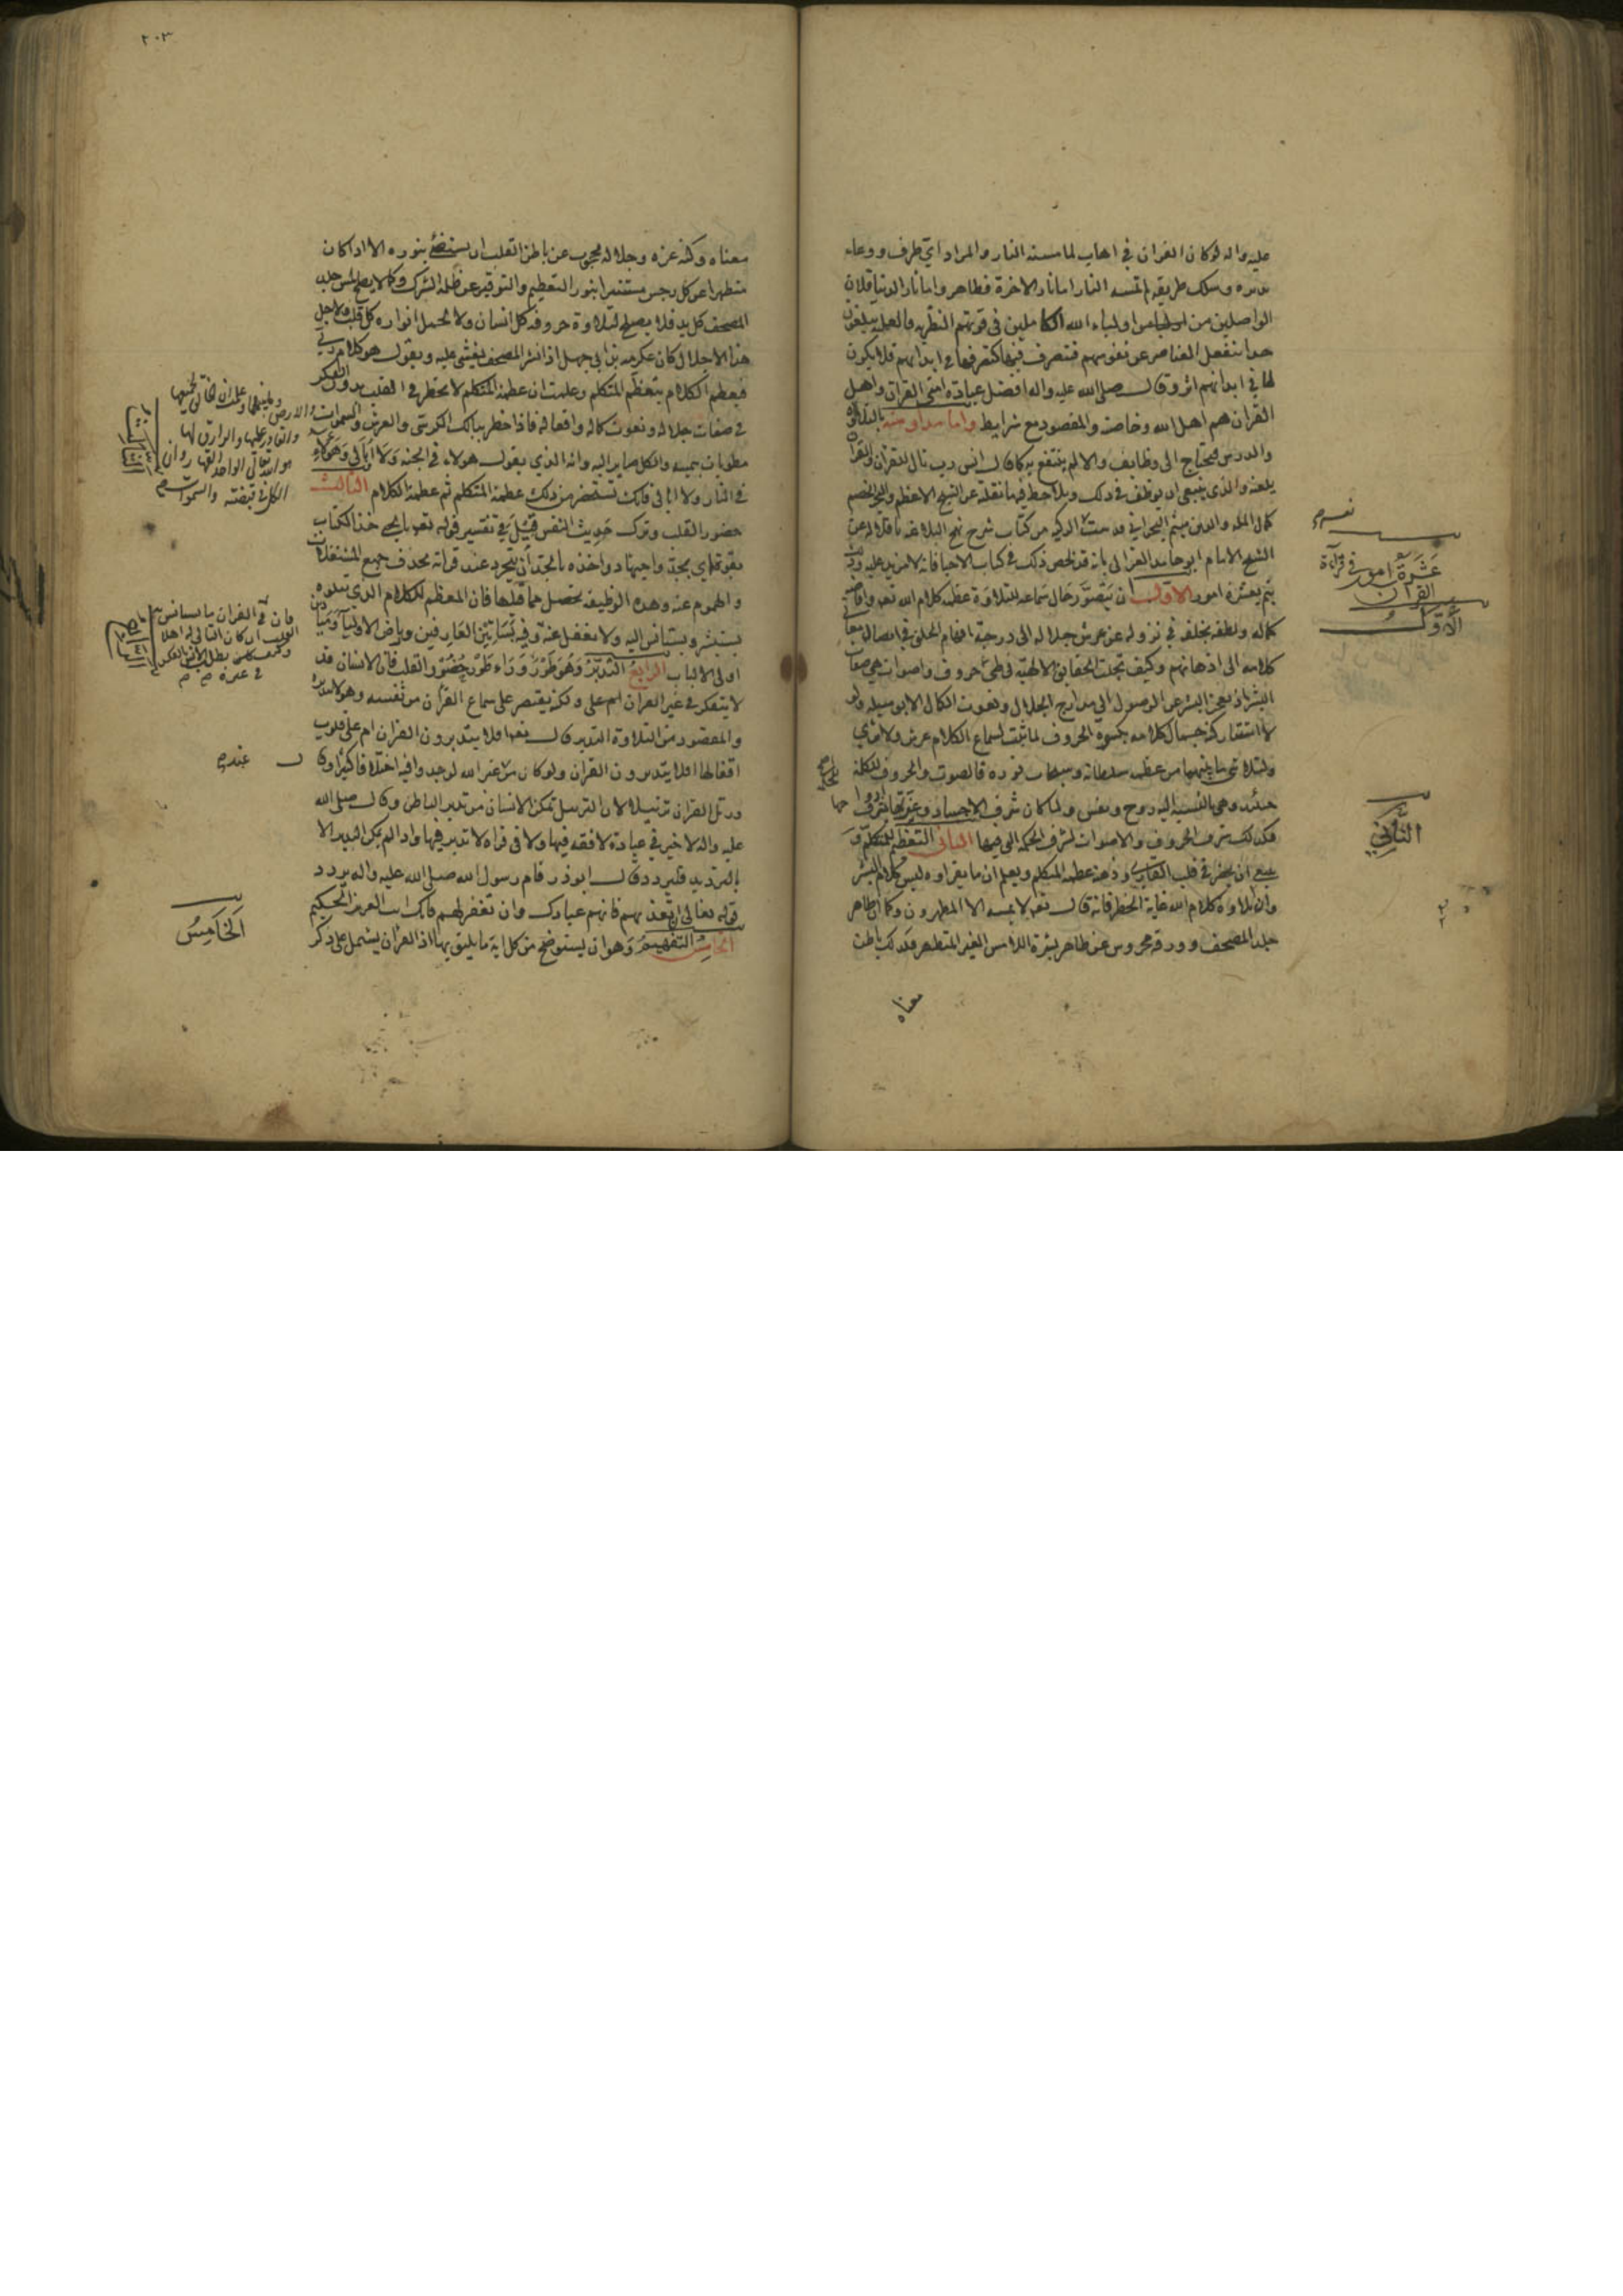 عليه واله لو كان القران في اهاب لما مسته النار والمراد اي ظرف ووعاء
تدبره وسلك طريقه لم تمسه النار اما نار الاخرة فظاهر واما نار الدنيا فلان
الواصلين من اولياء الله الكاملين في قوتهم النظرية والعملية يبلغون
حدا تنفعل العناصر عن نفوسهم فتتصرف فيها كتصرفها في ابدانهم فلا يكون
لها في ابدانهم اثر وقال صلى الله عليه واله افضل عبادة امتي القران واهل
القران هم اهل الله وخاصته والمقصود مع شرايط واما مداومته بالتلاوة
والدرس فيحتاج الى وظايف والا لم ينتفع به كما قال انس رب تال للقران والقران
يلعنه والذي ينبغي ان يوظف في ذلك ويلاحظ فيها ما نقله عن الشيخ الاعظم والبحر الخضم
كمال الملة والدين ميثم البحراني قدست الزكيه من كتاب شرح نهج البلاغه ناقلا له عن
الشيخ الامام ابو حامد الغزالي بانه قد لخص ذلك في كتاب الاحيا فانه لا مزيد عليه
يتم بعشرة امور الاول ان يتصور حال سماعه للتلاوة عظمة كلام الله تعه وافاضه
كماله ولطفه بخلقه في نزوله عن عرش جلاله الى درجة افهام الخلق في ايصال معاني
كلامه الى اذهانهم وكيف تجلت الحقايق الالهيه في طي حروف واصوات هي صفات
البشر اذ يعجز البشر عن الوصول الى مدارج الجلال ونعوت الكمال الا بوسيلة ولو
لا استتار كنه جمال كلامه بكسوة الحروف لما ثبت لسماع الكلام عرش ولا ثرى
ولتلاشى ما بينهما من عظمه سلطانه وسبحات نوره فالصوت والحروف للكلمة
جسد وهي بالنسبة اليه روح ونفس ولما كان شرف الاجساد وعزتها بشرف
فكذلك شرف الحروف والاصوات لشرف الحكمة التي فيها الثاني التعظيم للمتكلم و
ينبغي ان يحضر في قلب القاري وذهنه عظمة المتكلم ويعلم ان ما يقراوه ليس كلام البشر
وان تلاوة كلام الله غاية الخطر فانه قال تعه لا يمسه الا المطهرون وكما ان ظاهر
جلد المصحف وورقه محروس عن ظاهر بشرة اللامس الغير المتطهر فكذلك باطن
معناه
نفسه
عشرة امور في قراءة
القران
الاول
الثاني
٢٠٣
معناه وكنه عزه وجلاله محجوب عن باطن القلب ان يستضئ بنوره الا اذا كان
متطهرا عن كل رجس مستنيرا بنور التعظيم والتوقير عن ظلمة الشرك وكما لا يصلح للمس جلد
المصحف كل يد فلا يصلح لتلاوة حروفه كل انسان ولا لحمل انواره كل قلب ولاجل
هذا الاجلال كان عكرمه بن ابي جهل اذا نشر المصحف يغشى عليه ويقول هو كلام ربي
فيعظم الكلام بتعظيم المتكلم وعلمت ان عظمة المتكلم لا تخطر في القلب بدون الفكر
في صفات جلاله ونعوت كماله وافعاله فاذا خطر ببالك الكرسي والعرش والسموات
مطويات بيمينه والكل صاير اليه وانه الذي يقول هولاء في الجنه ولا ابالي وهولاء
في النار ولا ابالي فانك تستحضر من ذلك عظمة المتكلم ثم عظمة الكلام الثالث
حضور القلب وترك حديث النفس قيل في تفسير قوله تعه يا يحيى خذ الكتاب
بقوة اي بجد واجتهاد واخذه بالجد ان يتجرد عند قرائته بحذف جميع المشغلات
والهموم عنه وهذه الوظيفه تحصل مما قبلها فان المعظم للكلام الذي يتلوه
يستبشر ويستانس اليه ولا يغفل عنه وفيه بساتين العارفين ورياض الاوليا
اولى الالباب الرابع التدبر وهو طور وراء طور حضور القلب فان الانسان قد
لا يتفكر في غير القران ولكنه يقتصر على سماع القران من نفسه وهو لا يتدبره
والمقصود من التلاوة التدبر قال تعه افلا يتدبرون القران ام على قلوب
اقفالها افلا يتدبرون القران ولو كان من عند غير الله لوجدوا فيه اختلافا كثيرا وقال
ورتل القران ترتيلا لان الترتيل تمكن الانسان من تدبر الباطن وقال صلى الله
عليه واله لا خير في عبادة لا فقه فيها ولا في قراة لا تدبر فيها واذا لم يمكن التدبر الا
بالترديد فليردد قال ابو ذر قام رسول الله صلى الله عليه واله يردد
قوله تعالى ان تعذبهم فانهم عبادك وان تغفر لهم فانك انت العزيز الحكيم
الخامس التفهيم وهو ان يستوضح من كل اية ما يليق بها اذ القران يشتمل على ذكر
والارض وما بينهما وعلمت ان خالق جميعها
والقادر عليها والرازق لها
هو الله تعالى الواحد القهار وان
الكل في قبضته والسموات
الثالث
فان في القران ما يستانس به
القلب ان كان التالي له اهلا
وكيف يطلب الانس بالفكر
في غيره
الرابع
عنده
الخامس